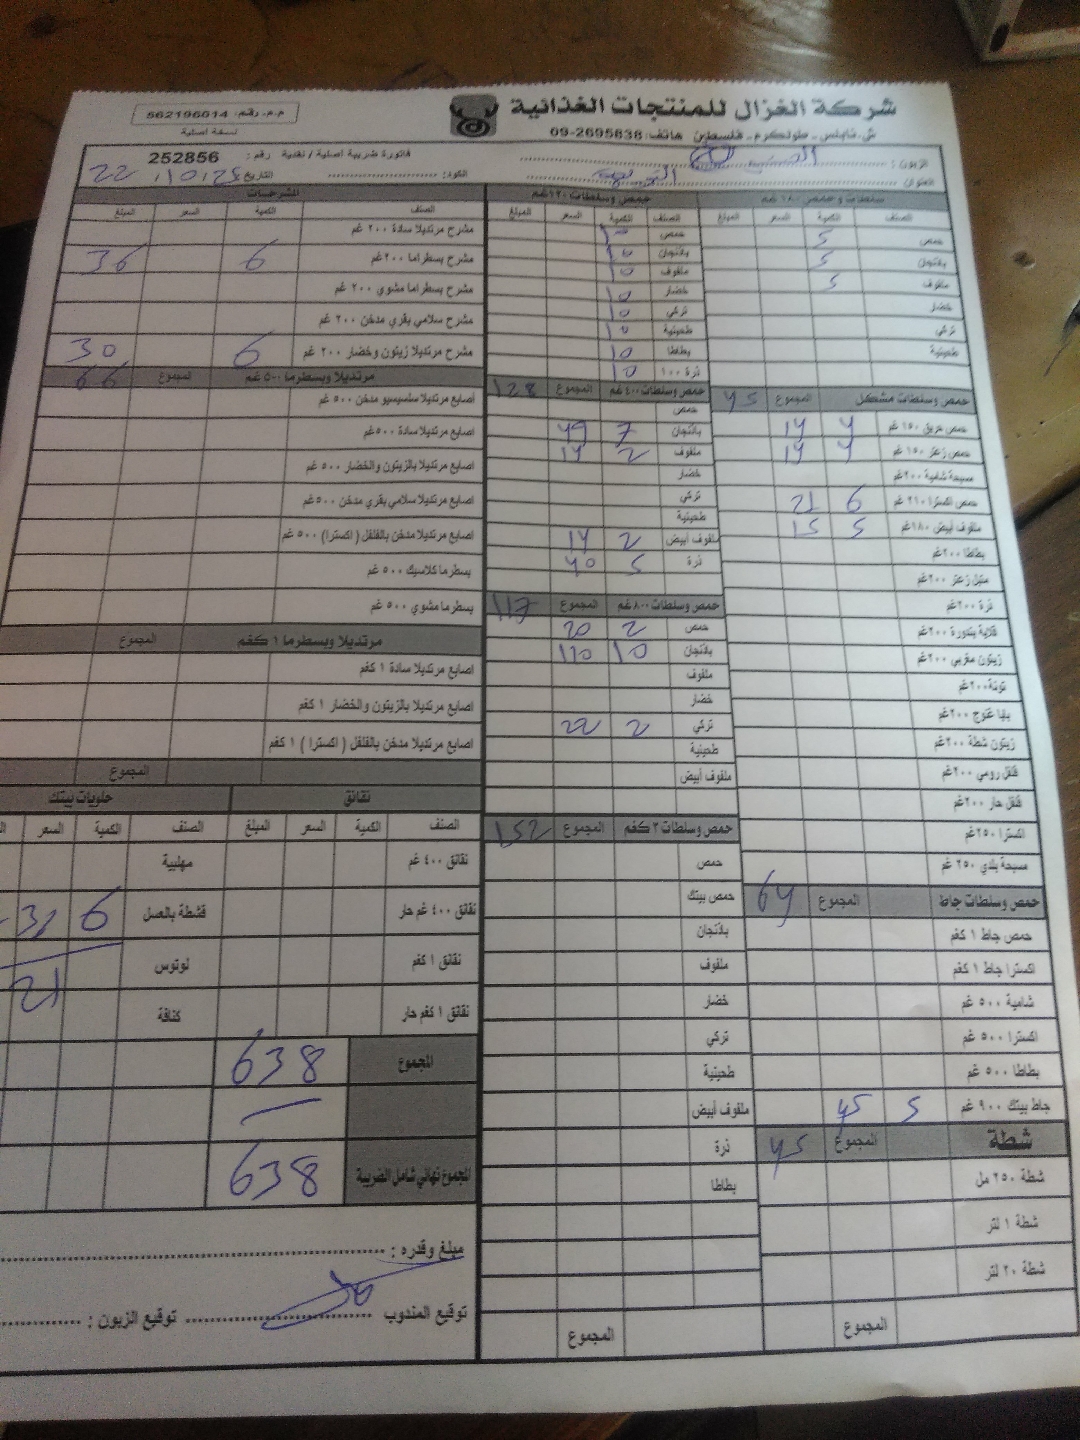 شركة الغزال للمنتجات الغذائية
ش. نابلس - طولكرم - فلسطين هاتف: 09-2695838
م.م. رقم: 562196014
نسخة اصلية
فاتورة ضريبية اصلية / نقدية رقم: 252856
الزبون:
العنوان
الكود: التاريخ 22.10.25
سلطات وحمص ١٨٠ غم
الصنف الكمية السعر المبلغ
حمص 5
باذنجان 5
ملفوف 5
خضار
تركي
طحينية
حمص وسلطات مشكل المجموع 45
حمص حريق ١٥٠ غم 4 14
حمص زعتر ١٥٠ غم 4 14
مسبحة شامية ٢٠٠ غم
حمص اكسترا ٢١٠ غم 6 21
ملفوف أبيض ١٨٠ غم 5 15
بطاطا ٢٠٠ غم
متبل زعتر ٢٠٠ غم
ذرة ٢٠٠ غم
قلاية بندورة ٢٠٠ غم
زيتون مغربي ٢٠٠ غم
تونة ٢٠٠ غم
بابا غنوج ٢٠٠ غم
زيتون شطة ٢٠٠ غم
فلفل رومي ٢٠٠ غم
فلفل حار ٢٠٠ غم
اكسترا ٢٥٠ غم
مسبحة بلدي ٢٥٠ غم
حمص وسلطات جاط المجموع 64
حمص جاط ١ كغم
اكسترا جاط ١ كغم
شامية ٥٠٠ غم
اكسترا ٥٠٠ غم
بطاطا ٥٠٠ غم
جاط بيتك ٩٠٠ غم 5 45
شطة المجموع 45
شطة ٢٥٠ مل
شطة ١ لتر
شطة ٢٠ لتر
المجموع
حمص وسلطات ١٢٠ غم
الصنف الكمية السعر المبلغ
حمص 10
باذنجان 10
ملفوف 10
خضار 10
تركي 10
طحينية 10
بطاطا 10
ذرة ١٠٠ 10
حمص وسلطات ٤٠٠ غم المجموع 128
حمص
باذنجان 7 49
ملفوف 2 14
خضار
تركي
طحينية
ملفوف أبيض 2 14
ذرة 5 40
حمص وسلطات ٨٠٠ غم المجموع 117
حمص 2 20
باذنجان 10 110
ملفوف
خضار
تركي 2 22
طحينية
ملفوف أبيض
حمص وسلطات ٣ كغم المجموع 152
حمص
حمص بيتك
باذنجان
ملفوف
خضار
تركي
طحينية
ملفوف أبيض
ذرة
بطاطا
المجموع
الشرحات
الصنف الكمية السعر المبلغ
مشرح مرتديلا سادة ٢٠٠ غم
مشرح بسطراما ٢٠٠ غم 6 36
مشرح بسطراما مشوي ٢٠٠ غم
مشرح سلامي بقري مدخن ٢٠٠ غم
مشرح مرتديلا زيتون وخضار ٢٠٠ غم 6 30
مرتديلا وبسطرما ٥٠٠ غم المجموع 66
اصابع مرتديلا سلسيسيو مدخن ٥٠٠ غم
اصابع مرتديلا سادة ٥٠٠ غم
اصابع مرتديلا بالزيتون والخضار ٥٠٠ غم
اصابع مرتديلا سلامي بقري مدخن ٥٠٠ غم
اصابع مرتديلا مدخن بالفلفل ( اكسترا) ٥٠٠ غم
بسطرما كلاسيك ٥٠٠ غم
بسطرما مشوي ٥٠٠ غم
مرتديلا وبسطرما ١ كغم المجموع
اصابع مرتديلا سادة ١ كغم
اصابع مرتديلا بالزيتون والخضار ١ كغم
اصابع مرتديلا مدخن بالفلفل ( اكسترا ) ١ كغم
المجموع
نقانق
الصنف الكمية السعر المبلغ
نقانق ٤٠٠ غم
نقانق ٤٠٠ غم حار
نقانق ١ كغم
نقانق ١ كغم حار
حلويات بيتك
الصنف الكمية السعر
مهلبية
قشطة بالعسل 6
لوتوس
كنافة
21
المجموع 638
المجموع نهائي شامل الضريبة 638
مبلغ وقدره :
توقيع المندوب توقيع الزبون :